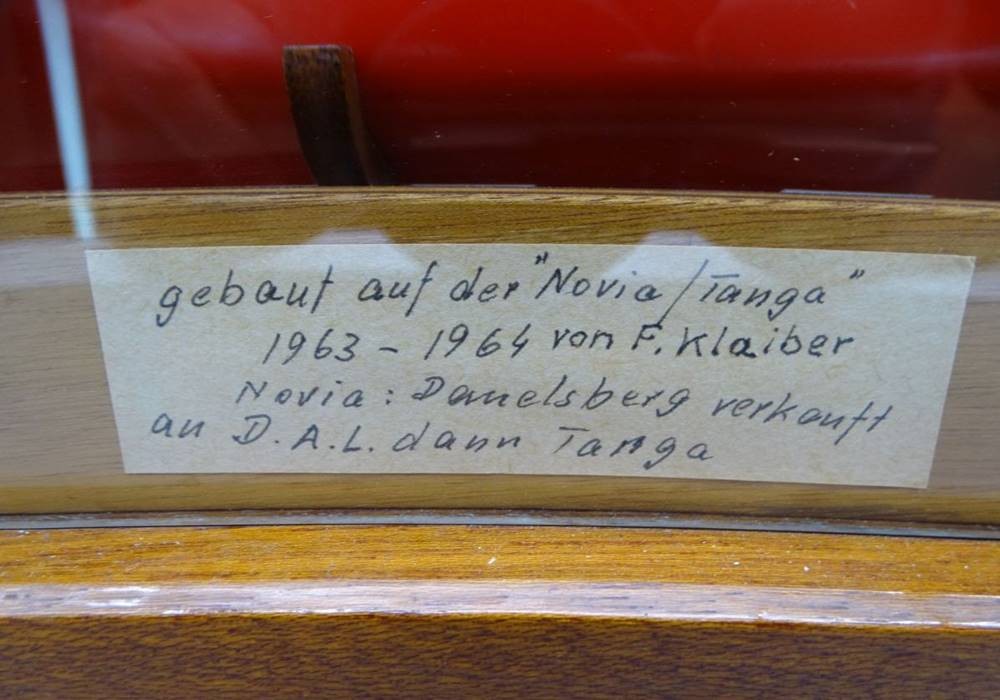 gebaut auf der "Novia/Tanga"
1963 - 1964 von F. Klaiber
Novia: Danelsberg verkauft
an D.A.L. dann Tanga